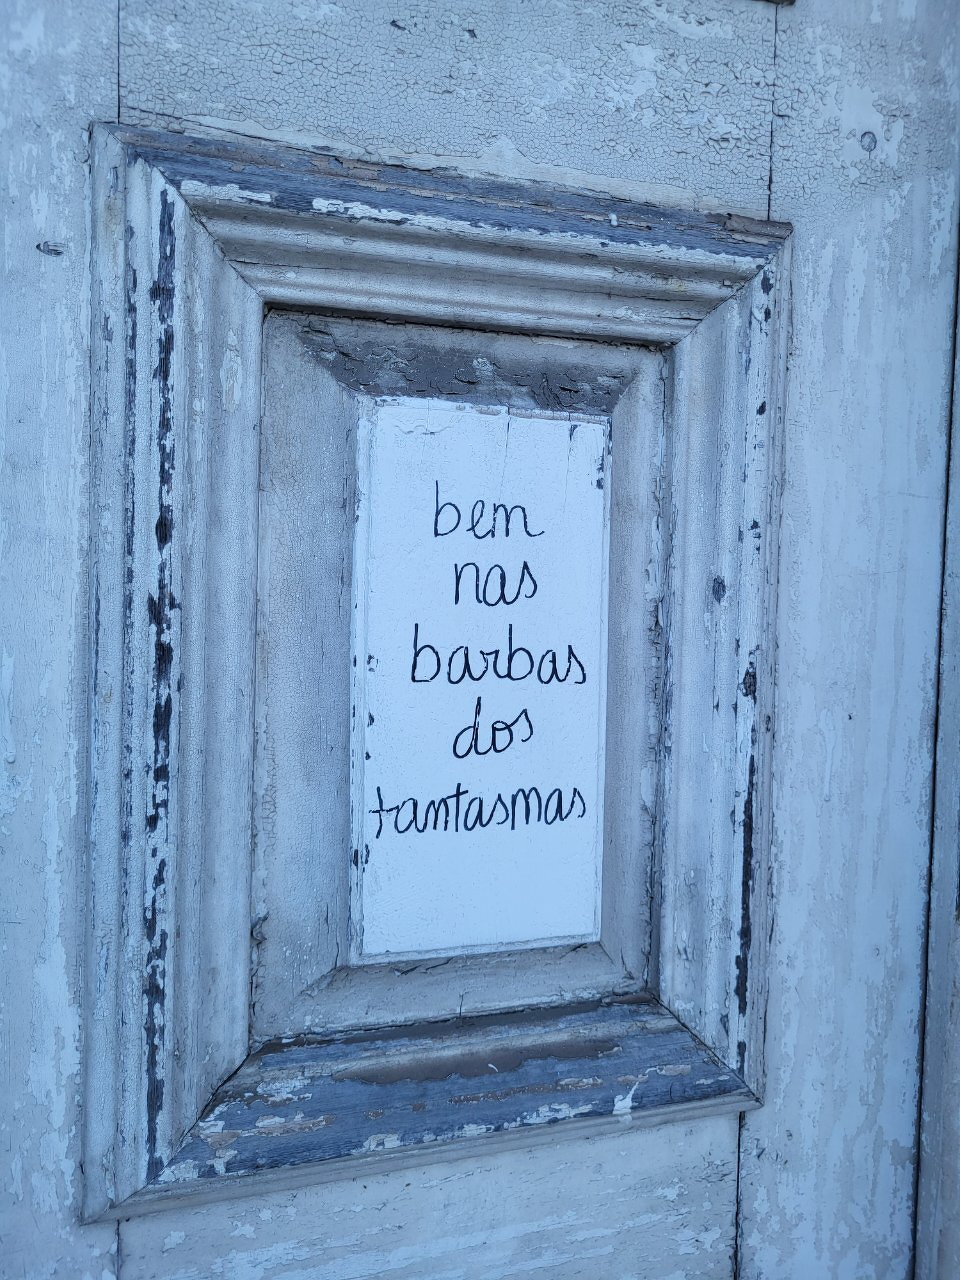 bem
nas
barbas
dos
fantasmas